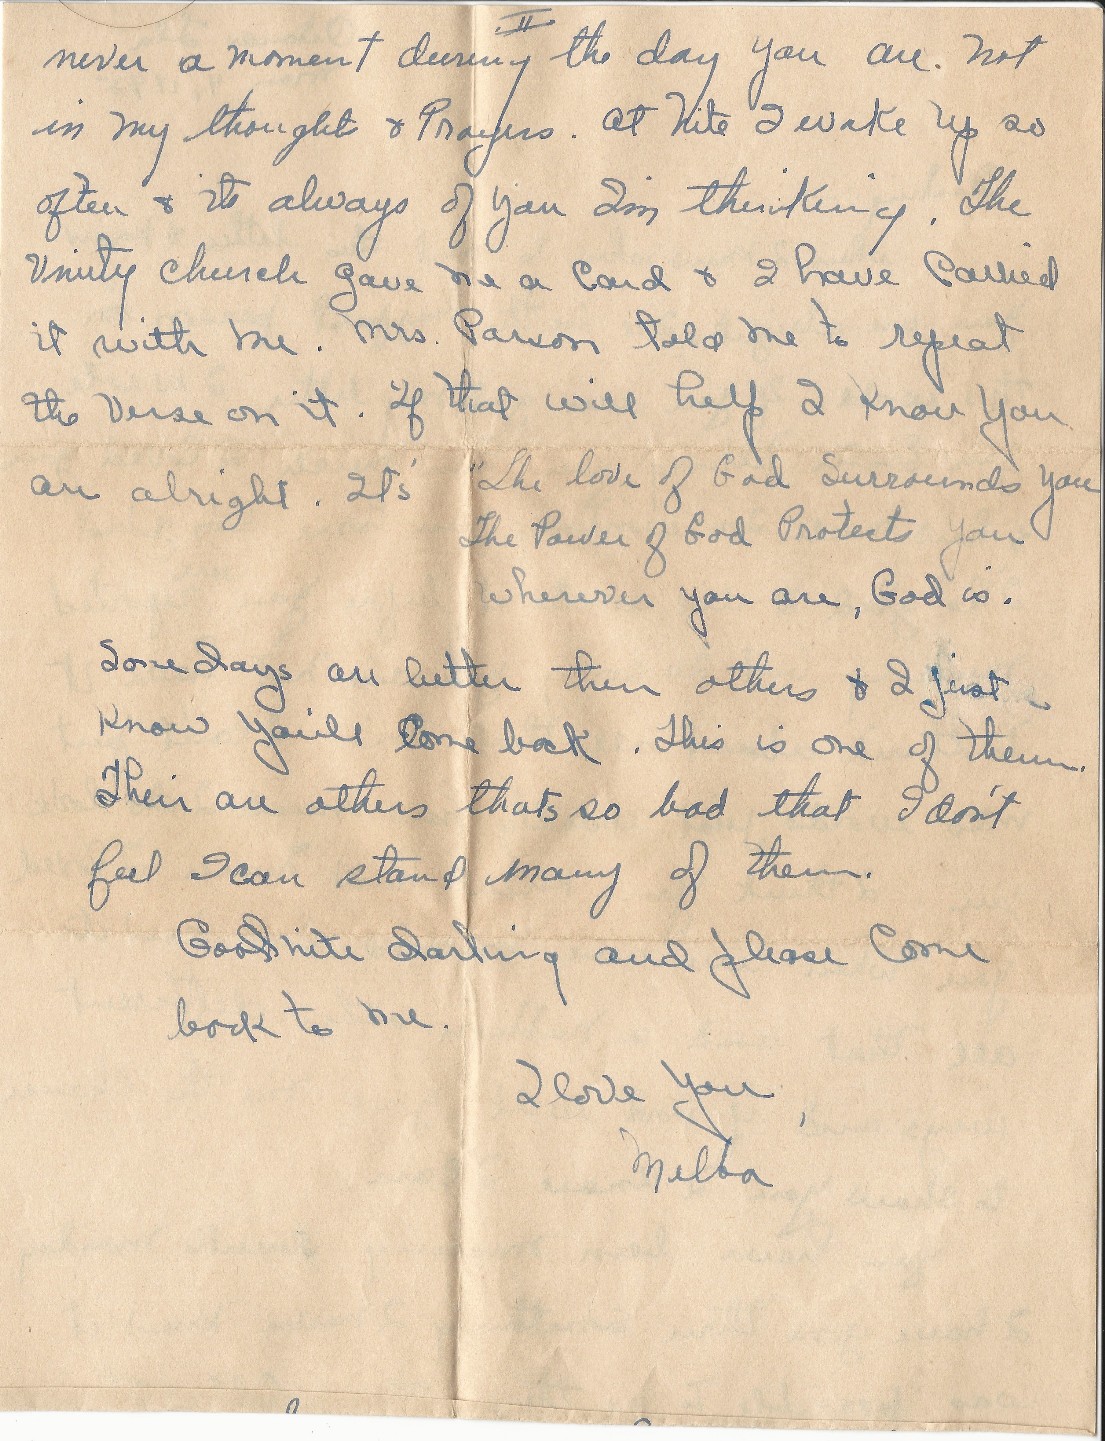 II
never a moment during the day you are. not
in my thoughts & Prayers. at nite I wake up so
often & its always of you I'm thinking. The
Unity church gave me a card & I have carried
it with me. Mrs. Parson told me to repeat
the Verse on it. If that will help I know you
are alright. It's "The love of God Surrounds you
The Power of God Protects you
Wherever you are, God is.
Some days are better then others & I just
know you'll come back. This is one of them.
Their are others thats so bad that I don't
feel I can stand many of them.
Goodnite darling and please come
back to me.
I love you,
Melba